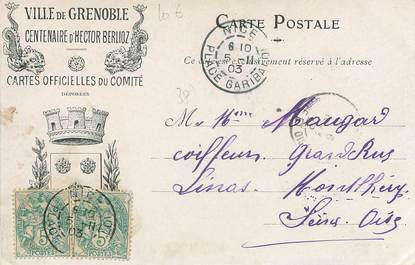 VILLE DE GRENOBLE
CENTENAIRE D'HECTOR BERLIOZ
CARTES OFFICIELLES DU COMITÉ
DÉPOSÉES
10 €
CARTE POSTALE
Ce côté est exclusivement réservé à l'adresse
NICE
6 10
5
03
PLACE GARIBALDI
38
M. Mme Maugard
coiffeur Grand Rue
Linas Montlhéry
Seine Oise
NICE
03